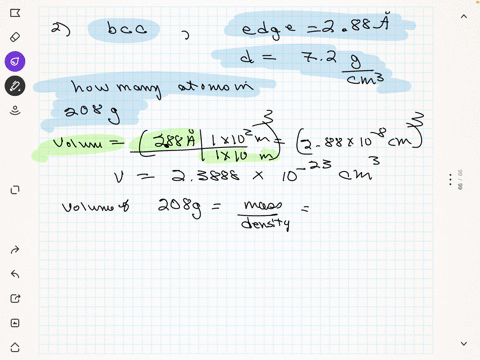 2) bcc , edge = 2.88 Å
d = 7.2 g/cm³
how many atoms in
208 g
Volum = (2.88 Å | 1 × 10² m / 1 × 10 m)³ = (2.88 × 10⁻⁸ cm)³
V = 2.3888 × 10⁻²³ cm³
Volume of 208g = mass/density =